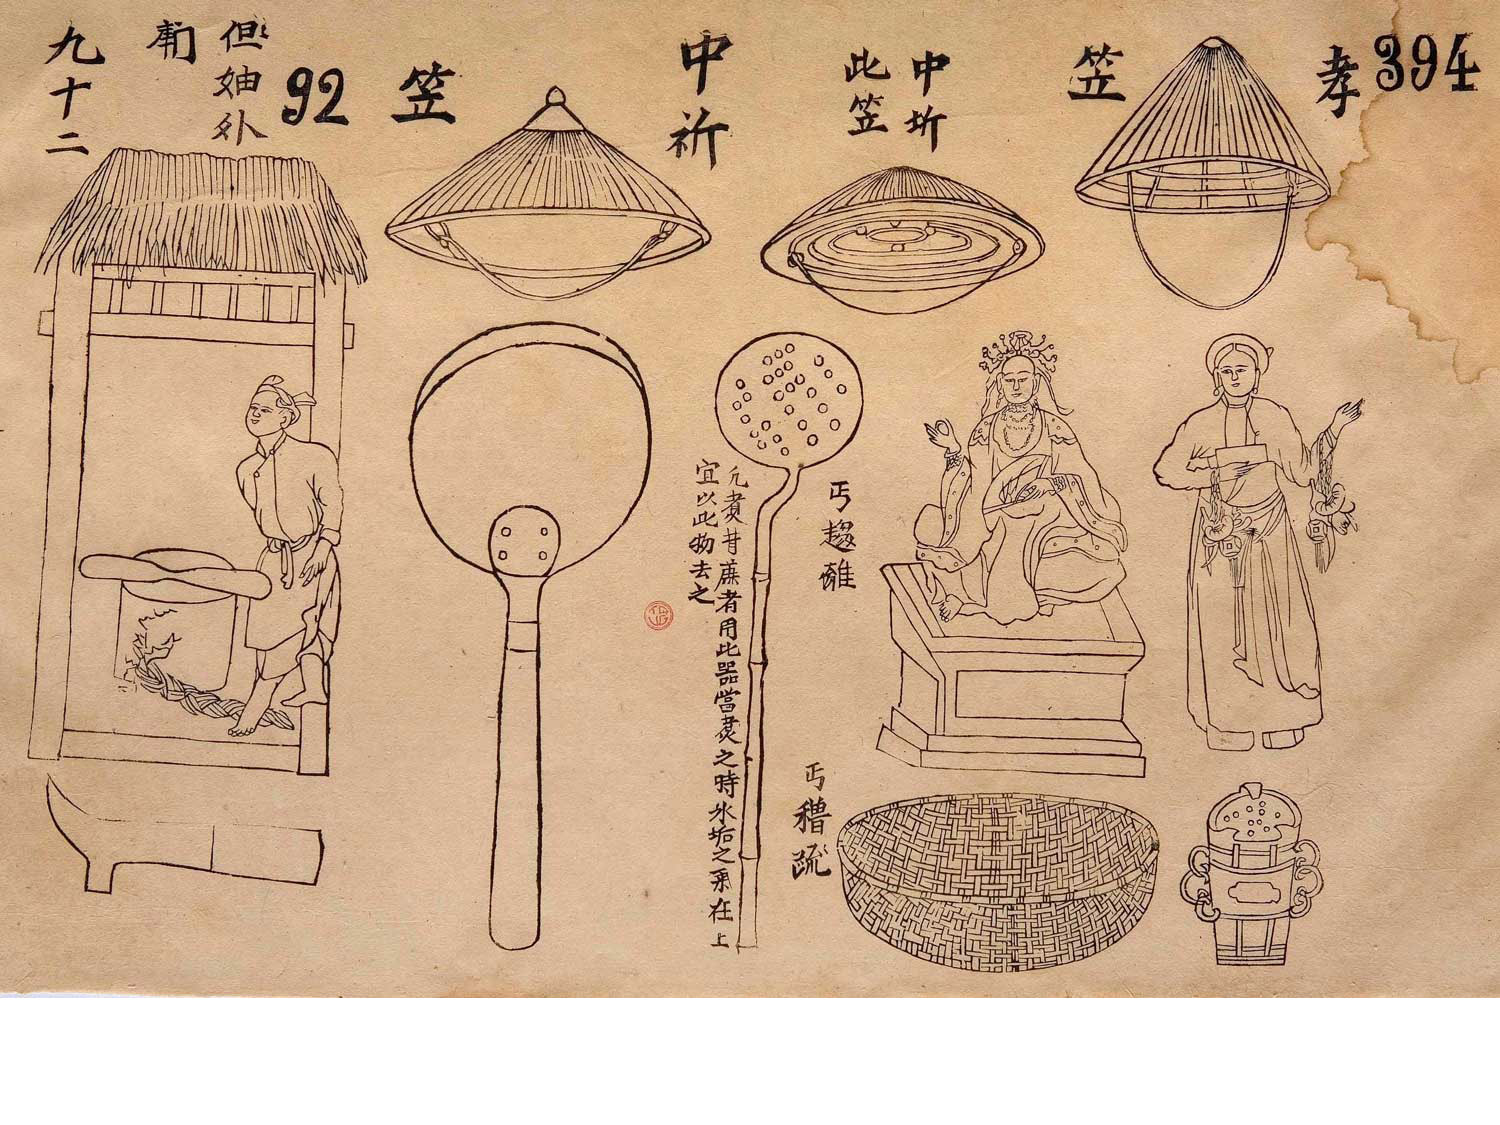 394
孝
笠
中圻
此笠
中祈
笠
92
但妯外
九十二
丐
丐
凢煑甘蔗者用此器當煑之時水垢之桼在上
宜以此物去之